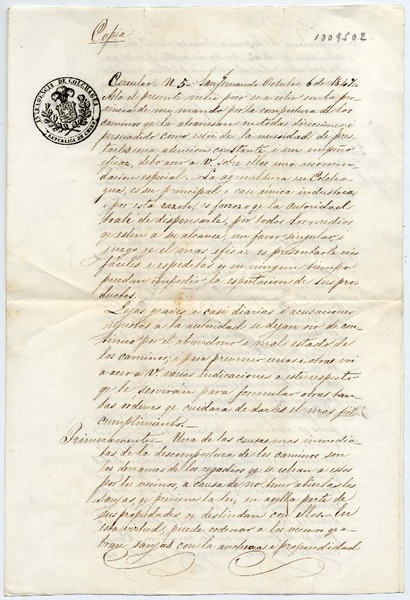 Copia
1009502
INTENDENCIA DE COLCHAGUA
REPUBLICA DE CHILE
Circular N. 5 - San Fernando Octubre 6 de 1847 -
el presente mes se en la pro
vincia de mi mando por la compostura de los
caminos qe la atraviesan en todas direcciones i
persuadido como estoi de la necesidad de pres-
tarles una atencion constante i un empeño
eficaz, debo acer a V. sobre ellos una recomen-
dacion especial. La agricultura en Colcha-
gua, es su principal i casi unica industria,
i por esta razon, es forzoso qe la Autoridad
trate de dispensarle, por todos los medios
qe esten a su alcance, un favor singular, i
juzgo qe el mas eficaz es presentarle vias
faciles i espeditas qe en ningun tiempo
puedan impedir la esportacion de sus pro-
ductos.
Quejas graves i casi diarias i acusaciones
a la autoridad se dejan oir de con-
tinuo por el abandono i mal estado de
los caminos; i para prevenir unas i otras voi
a acer a V. varias indicaciones a este respecto
qe le servirán para formular otras tan-
tas ordenes qe cuidará de darles el mas fiel
cumplimiento.
Primeramente - Una de las causas mas inmedia-
tas de la descompostura de los caminos son
los derrames de los regadios qe se echan a estos
por los vecinos, a causa de no tener abiertas las
sanjas qe previene la lei, en aqlla parte de
sus propiedades qe deslindan con ellos. En
esta virtud, puede ordenar a los vecinos qe a-
bran sanjas con la anchura i profundidad